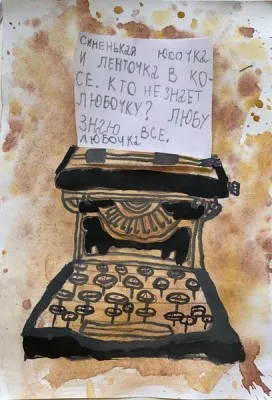 Синенькая юбочка
и ленточка в ко-
се. Кто не знает
Любочку? Любу
знаю все.
Любочка